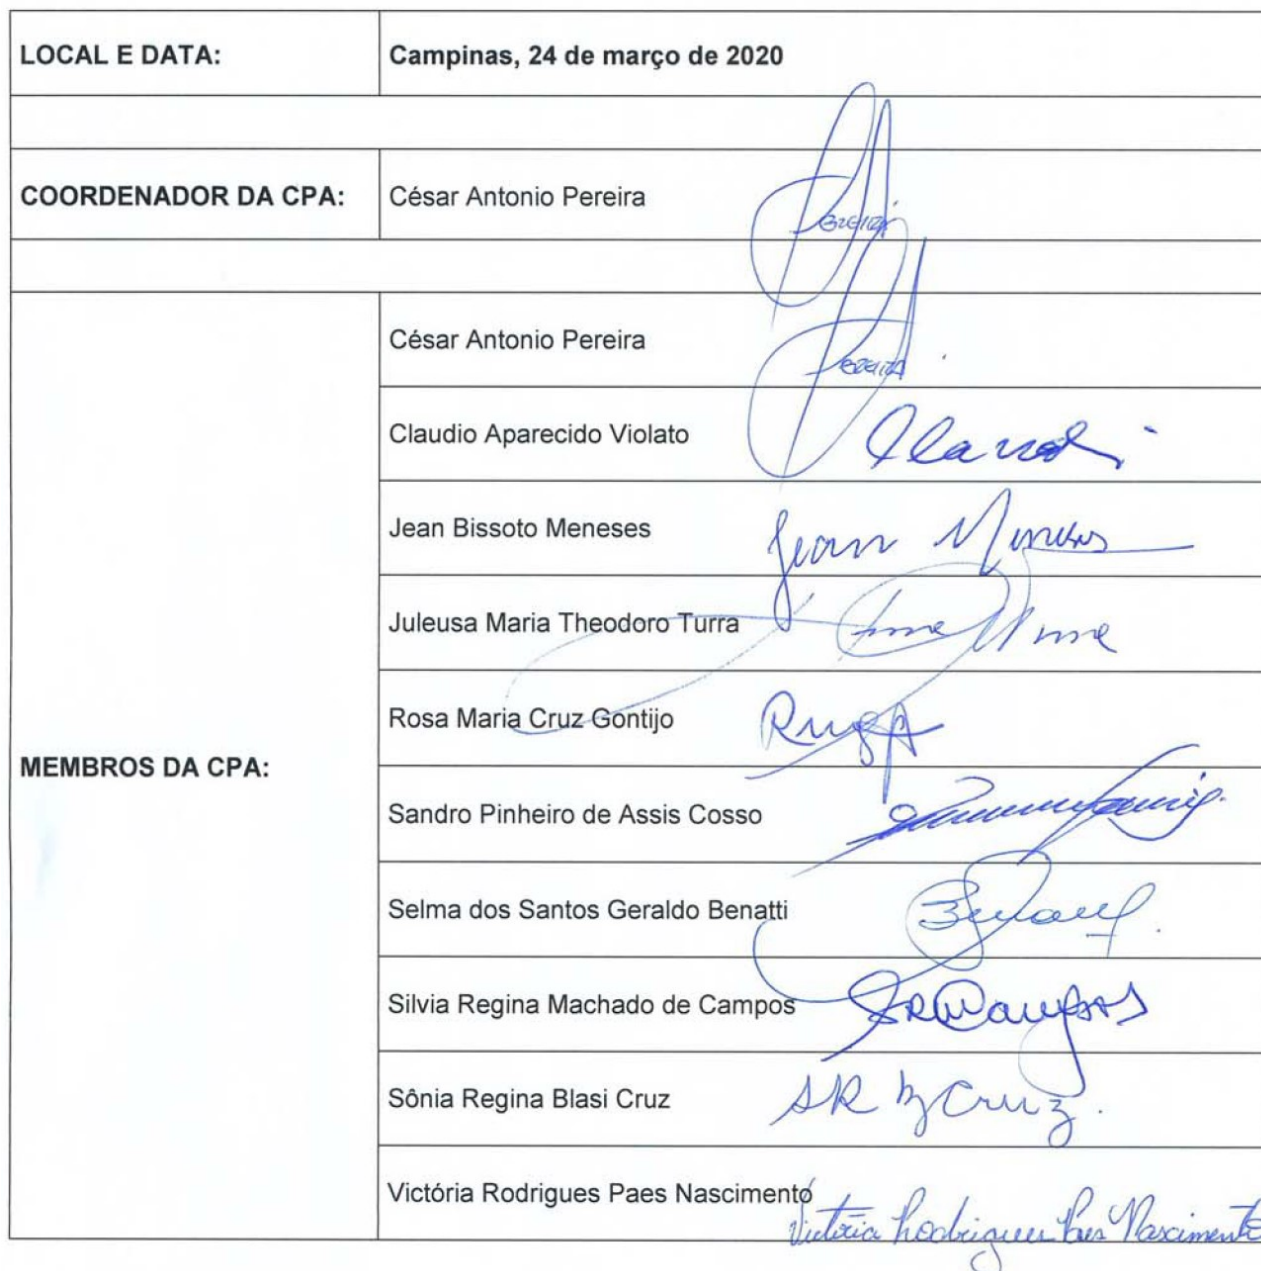 LOCAL E DATA: Campinas, 24 de março de 2020
COORDENADOR DA CPA: César Antonio Pereira
César Antonio Pereira
Claudio Aparecido Violato
Jean Bissoto Meneses Jean Meneses
Juleusa Maria Theodoro Turra
Rosa Maria Cruz Gontijo
MEMBROS DA CPA:
Sandro Pinheiro de Assis Cosso
Selma dos Santos Geraldo Benatti
Silvia Regina Machado de Campos SRMCampos
Sônia Regina Blasi Cruz SR B Cruz.
Victória Rodrigues Paes Nascimento
Victória Rodrigues Paes Nascimento